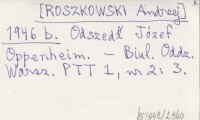 [ROSZKOWSKI Andrzej]
1946 b. Odszedł Józef
Oppenheim. - Biul. Oddz.
Warsz. PTT 1, nr 2: 3.